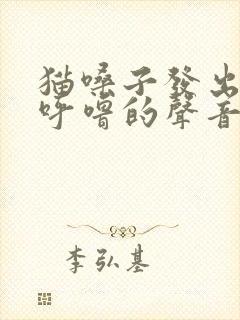 猫嗓子發出
呼嚕的聲音
李弘基